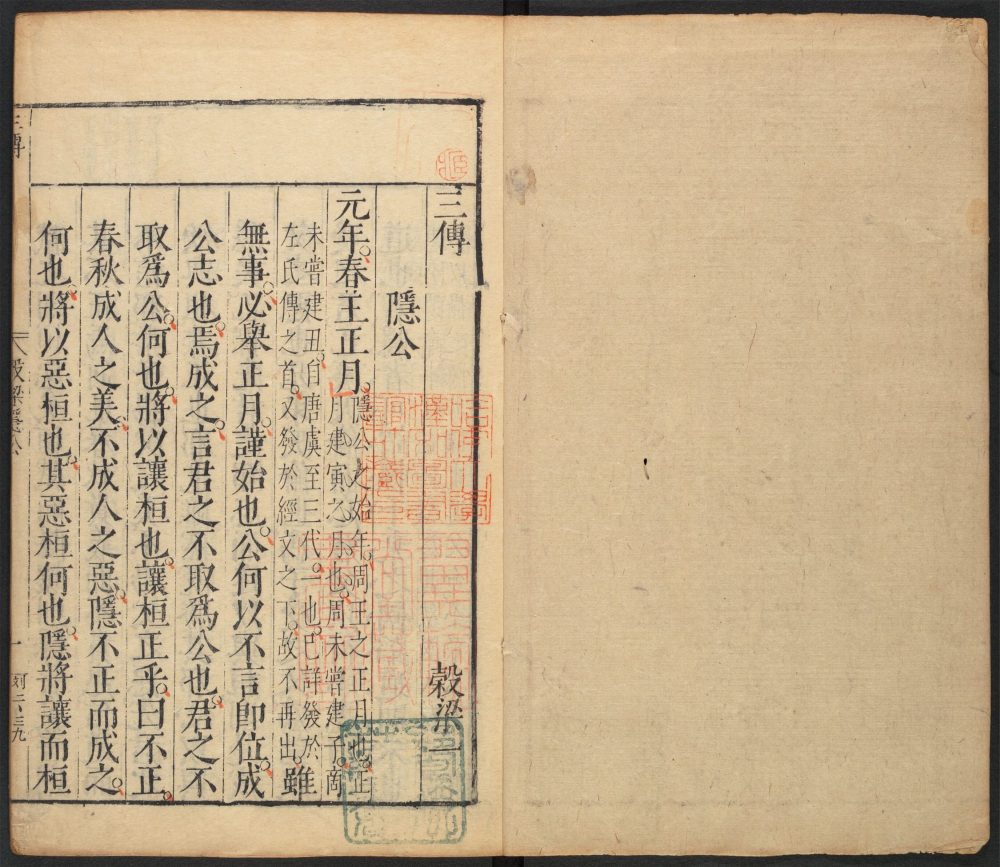 三傳 穀梁一
隱公
元年。春王正月。隱公之始年。周王之正月也。正月建寅之月也。周未嘗建子。商
未嘗建丑。自唐虞至三代。一也。已詳發於
左氏傳之首。又發於經文之下。故不再出。雖
無事。必舉正月。謹始也。公何以不言即位。成
公志也。焉成之。言君之不取爲公也。君之不
取爲公。何也。將以讓桓也。讓桓正乎。曰不正。
春秋成人之美。不成人之惡。隱不正而成之。
何也。將以惡桓也。其惡桓何也。隱將讓而桓
三傳
穀梁隱公
一